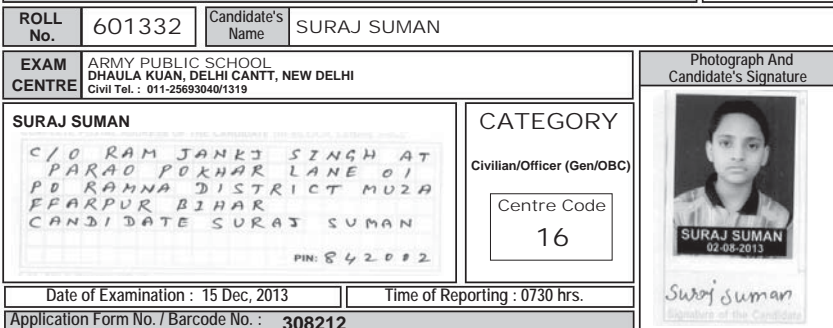 ROLL No. 601332 Candidate's Name SURAJ SUMAN
EXAM CENTRE
ARMY PUBLIC SCHOOL
DHAULA KUAN, DELHI CANTT, NEW DELHI
Civil Tel. : 011-25693040/1319
Photograph And
Candidate's Signature
SURAJ SUMAN
C/O RAM JANKI SINGH AT
PARAO POKHAR LANE 01
PO RAMNA DISTRICT MUZA
FFARPUR BIHAR
CANDIDATE SURAJ SUMAN
PIN: 842002
CATEGORY
Civilian/Officer (Gen/OBC)
Centre Code
16
SURAJ SUMAN
02-08-2013
Suraj suman
Signature of the Candidate
Date of Examination : 15 Dec, 2013 Time of Reporting : 0730 hrs.
Application Form No. / Barcode No. : 308212